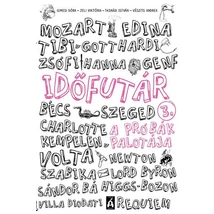 GIMESI DÓRA – JELI VIKTÓRIA – TASNÁDI ISTVÁN – VÉSZITS ANDREA
MOZART EDINA
TIBI-GOTTHARDI
ZSÓFI HANNA GENF
IDŐFUTÁR
BÉCS SZEGED 3.
CHARLOTTE A PRÓBÁK
KEMPELEN PALOTÁJA
VOLTA NEWTON
SZABIKA LORD BYRON
SÁNDOR BÁ HIGGS-BOZON
VILLA DIODATI REQUIEM